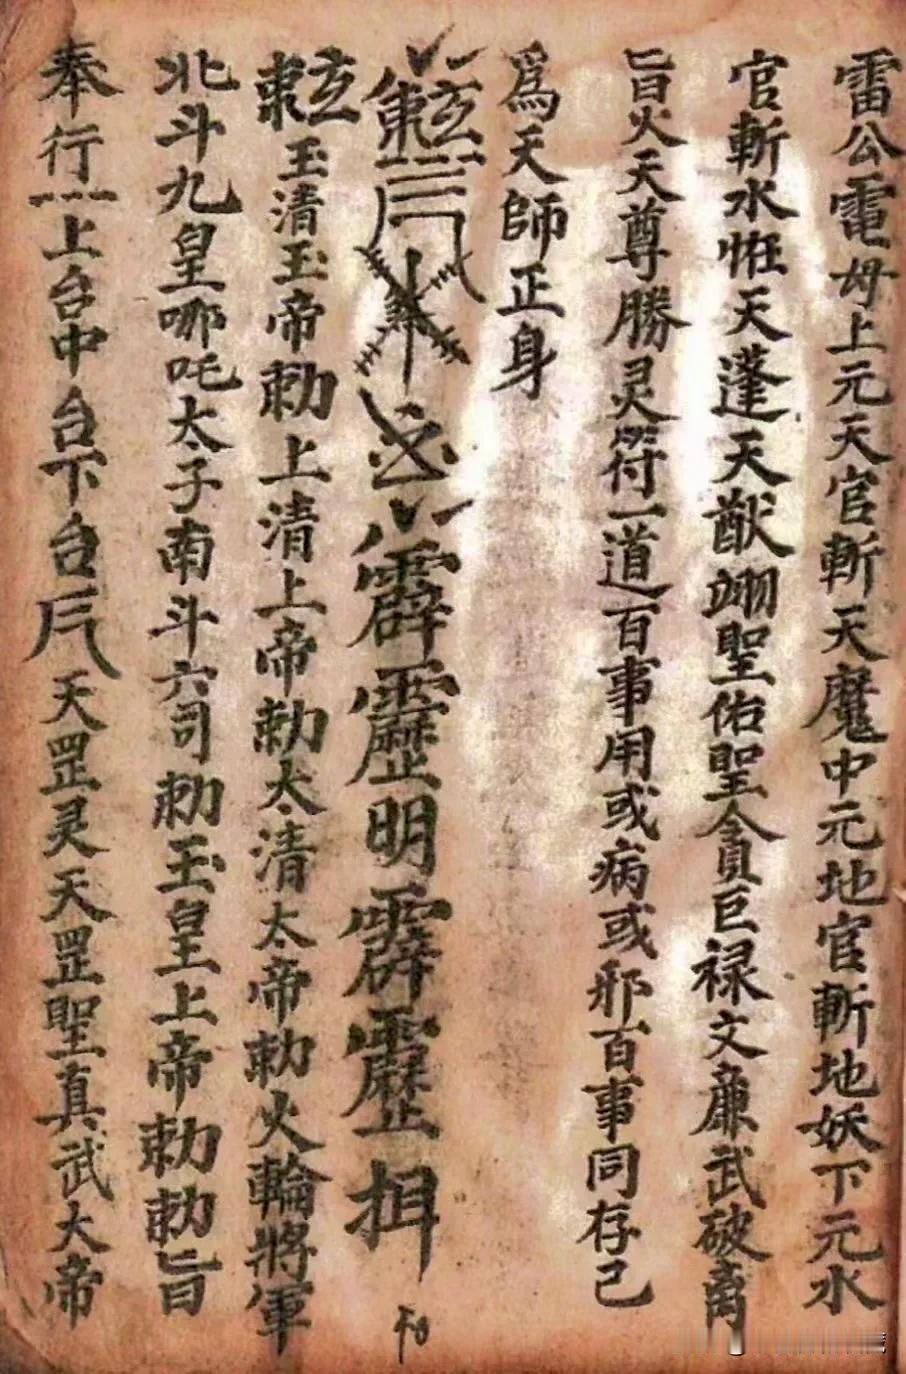 雷公電母上元天官斬天魔中元地官斬地妖下元水
官斬水恠天蓬天猷翊聖佑聖貪巨禄文廉武破离
旨火天尊勝灵符一道百事用或病或邪百事同存己
為天師正身
霹靂明霹靂
玉清玉帝勅上清上帝勅太清太帝勅火輪將軍
北斗九皇哪吒太子南斗六司勅玉皇上帝勅勅旨
奉行上台中台下台天罡灵天罡聖真武大帝